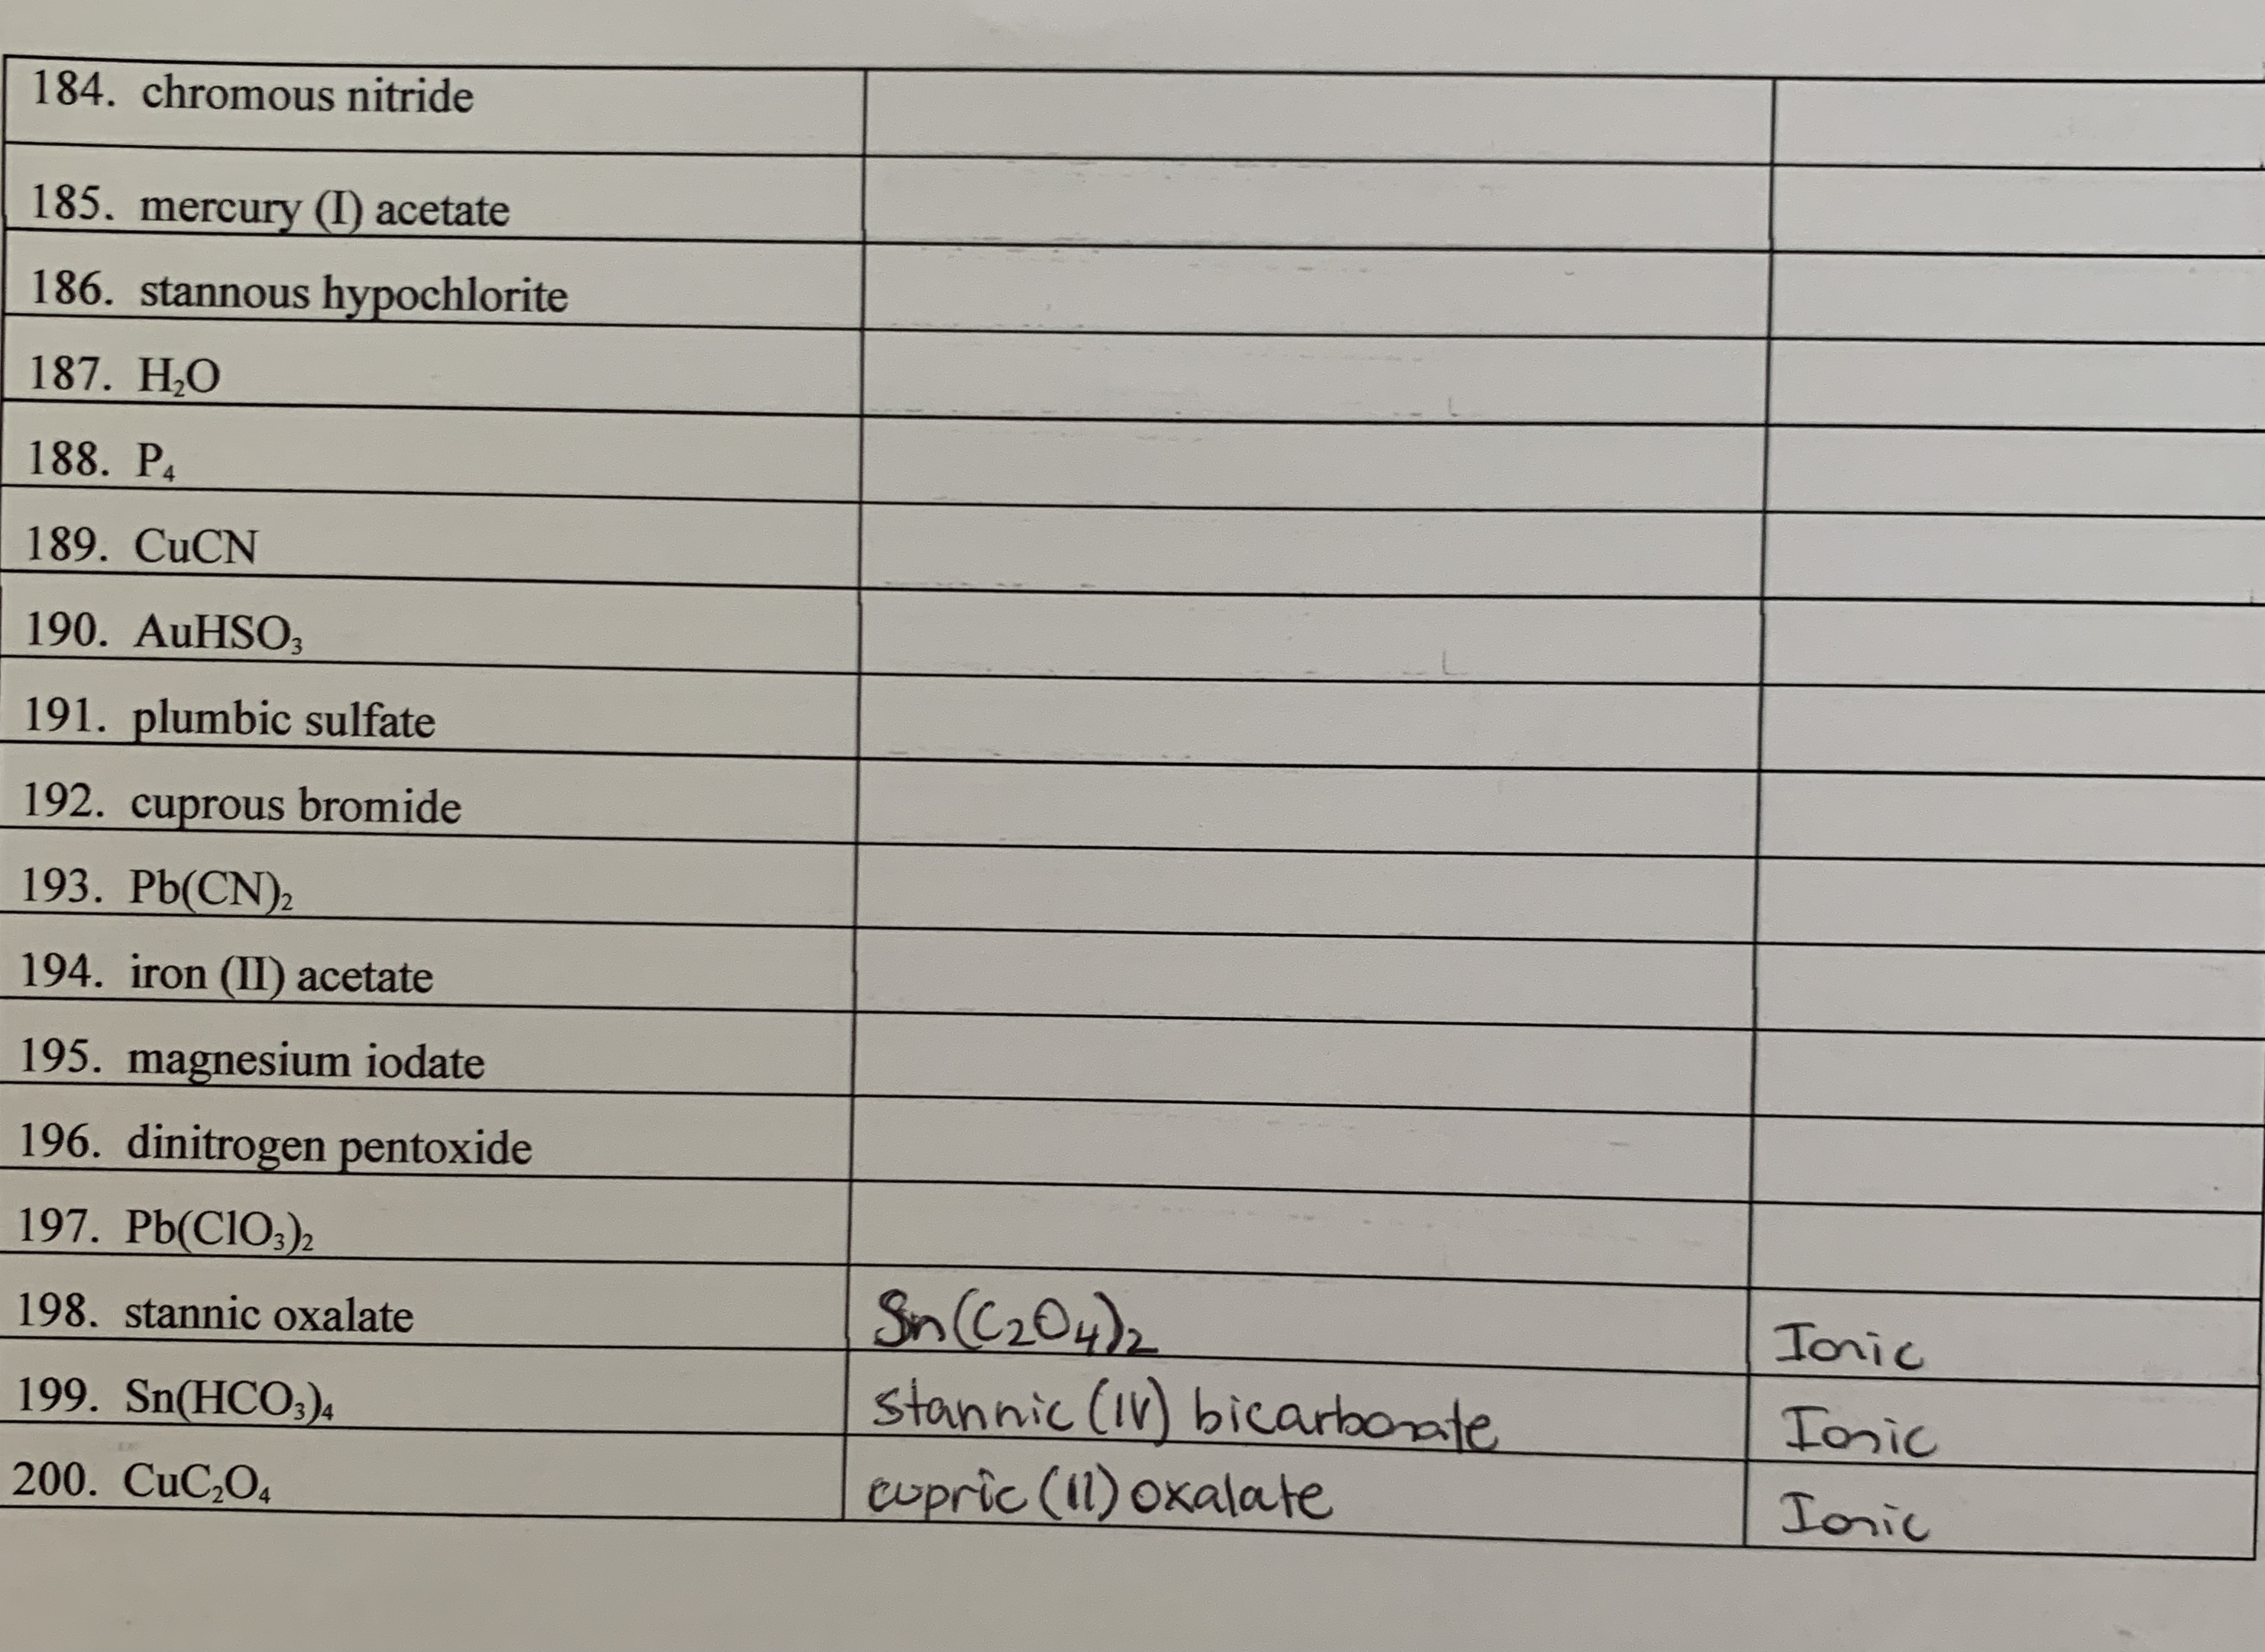 184. chromous nitride
185. mercury (I) acetate
186. stannous hypochlorite
187. H₂O
188. P₄
189. CuCN
190. AuHSO₃
191. plumbic sulfate
192. cuprous bromide
193. Pb(CN)₂
194. iron (II) acetate
195. magnesium iodate
196. dinitrogen pentoxide
197. Pb(ClO₃)₂
198. stannic oxalate Sn(C₂O₄)₂ Ionic
199. Sn(HCO₃)₄ stannic (IV) bicarbonate Ionic
200. CuC₂O₄ cupric (II) oxalate Ionic